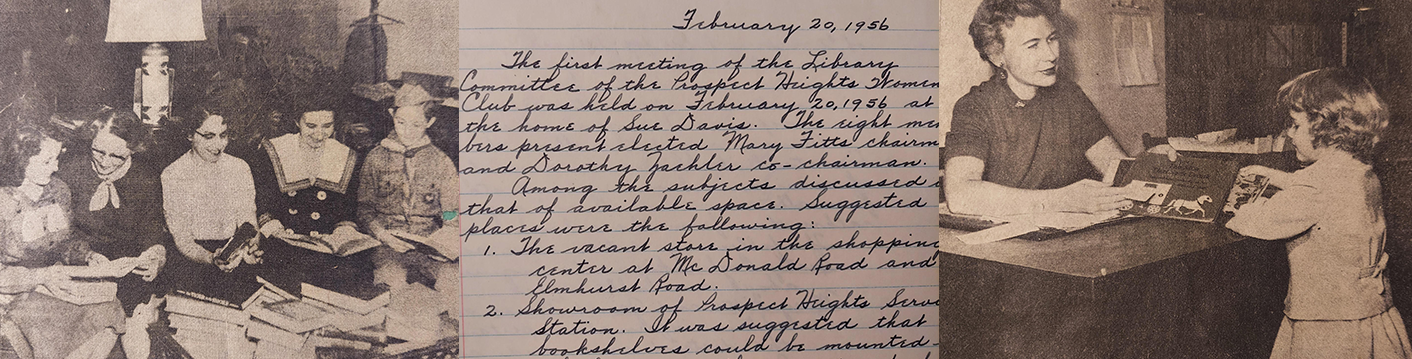 February 20, 1956
The first meeting of the Library
Committee of the Prospect Heights Women
Club was held on February 20, 1956 at
the home of Sue Davis. The eight mem
bers present elected Mary Fitts chairm
and Dorothy Zachler co-chairman.
Among the subjects discussed
that of available space. Suggested
places were the following:
1. The vacant store in the shopping
center at Mc Donald Road and
Elmhurst Road.
2. Showroom of Prospect Heights Servi
Station. It was suggested that
bookshelves could be mounted